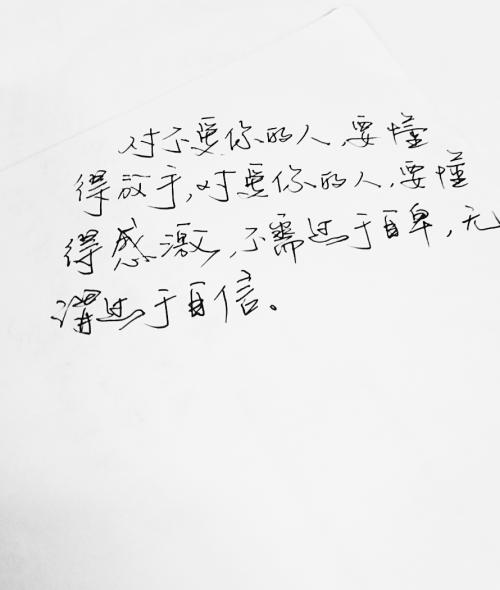 对不爱你的人,要懂
得放手,对爱你的人,要懂
得感激,不需过于自卑,无
过于自信。